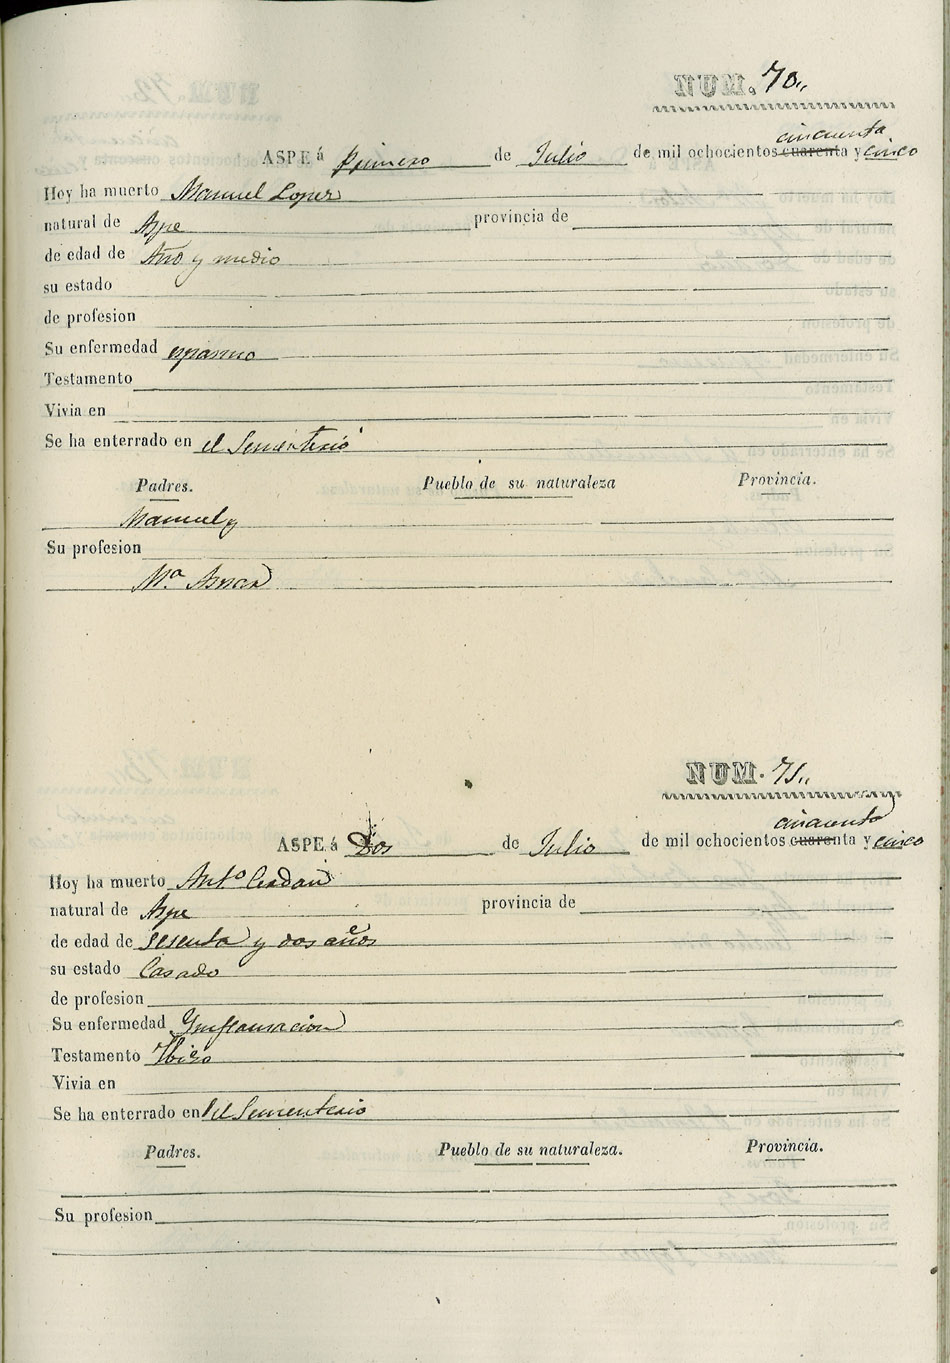 NUM. 70.
cincuenta
ASPE á Primero de Julio de mil ochocientos cuarenta y cinco
Hoy ha muerto Manuel Lopez
natural de Aspe provincia de
de edad de Año y medio
su estado
de profesion
Su enfermedad espasmo
Testamento
Vivia en
Se ha enterrado en el Sementerio
Padres. Pueblo de su naturaleza Provincia.
Manuel y
Su profesion
Mª Aznar
NUM. 71.
cincuenta
ASPE á Dos de Julio de mil ochocientos cuarenta y cinco
Hoy ha muerto Antº Cerdan
natural de Aspe provincia de
de edad de sesenta y dos años
su estado Casado
de profesion
Su enfermedad Ynflamacion
Testamento Hizo
Vivia en
Se ha enterrado en el Sementerio
Padres. Pueblo de su naturaleza. Provincia.
Su profesion